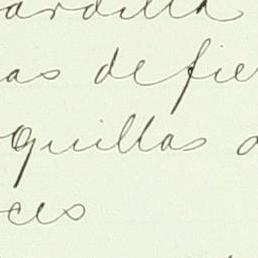 ardilla
as de fie
quillas a
ces